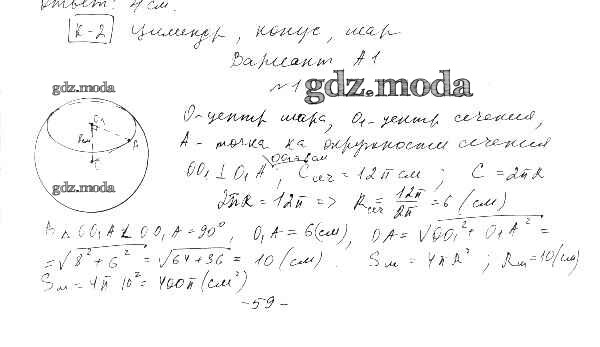 Ответ: 4 см.
К-2 Цилиндр, конус, шар
Вариант А1
№1
gdz.moda
gdz.moda
gdz.moda
O1
A
O-центр шара, O1-центр сечения,
A - точка на окружности сечения
OO1 ⊥ O1A, Cсеч = 12π см; C = 2πR
2πR = 12π => Rсеч = 12π/2π = 6 (см)
В △ OO1A ∠ OO1A = 90°, O1A = 6(см), OA = √OO1² + O1A² =
= √8² + 6² = √64+36 = 10 (см). Sш = 4πR²; Rш = 10(см)
Sш = 4π 10² = 400π (см²)
-59-